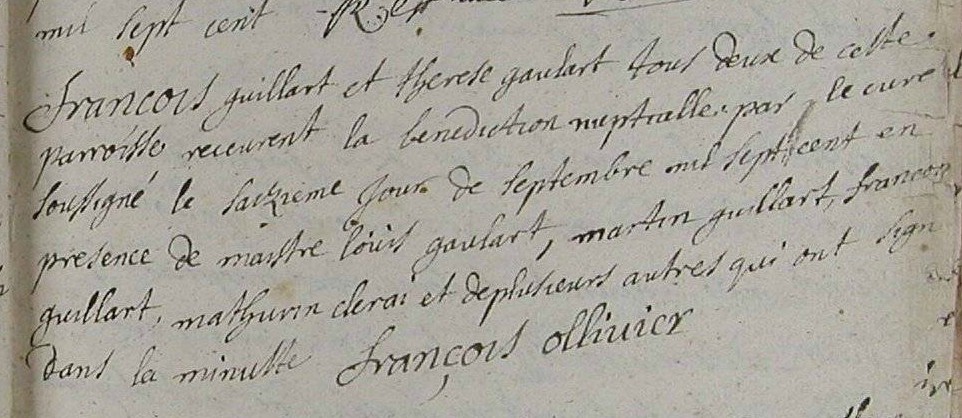 mil sept cent
francois guillart et therese gaulart tous deux de cette
parroisse receurent la benediction nuptialle par le curé
soussigné le saizieme jour de septembre mil sept cent en
presence de maistre loüis gaulart, martin guillart, francois
guillart, mathurin clerai et deplusieurs autres qui ont sign
dans la minutte françois ollivier